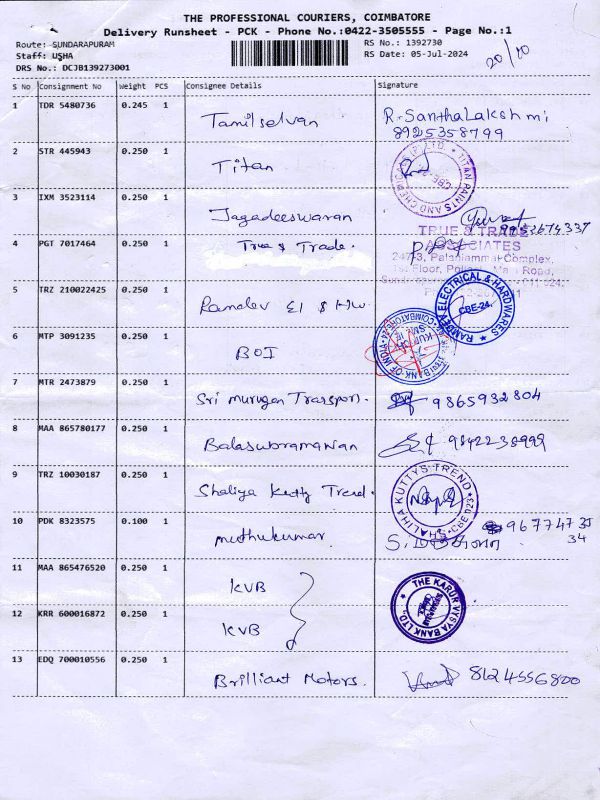 THE PROFESSIONAL COURIERS, COIMBATORE
Delivery Runsheet - PCK - Phone No.:0422-3505555 - Page No.:1
Route: SUNDARAPURAM
RS No.: 1392730
Staff: USHA
RS Date: 05-Jul-2024
DRS No.: DCJB139273001
20/10
S No Consignment No Weight PCS Consignee Details Signature
1 TDR 5480736 0.245 1 Tamilselvan R. Santhalakshmi
8925358799
2 STR 445943 0.250 1 Titan TITAN PAINTS AND CHEMICALS CBE-
3 IXM 3523114 0.250 1 Jagadeeswaran
4 PGT 7017464 0.250 1 True & Trade.
TRUE & TRADE
ASSOCIATES
247-3, Palaniammal Complex,
1st Floor, Main Road,
5 TRZ 210022425 0.250 1 Ramdev El & HW RAMDEV ELECTRICAL & HARDWARES CBE-24.
6 MTP 3091235 0.250 1 BOI BANK OF INDIA COIMBATORE
7 MTR 2473879 0.250 1 Sri Murugan Transport. 9865932804
8 MAA 865780177 0.250 1 Balasubramanian 9842238999
9 TRZ 10030187 0.250 1 Shaliya Kutty Trend. SHALIHA KUTTYS TREND CBE 023
10 PDK 8323575 0.100 1 Muthukumar 96774735
34
11 MAA 865476520 0.250 1 KVB THE KARUR VYSYA BANK LTD
12 KRR 600016872 0.250 1 KVB
13 EDQ 700010556 0.250 1 Brilliant Motors. 8124556800